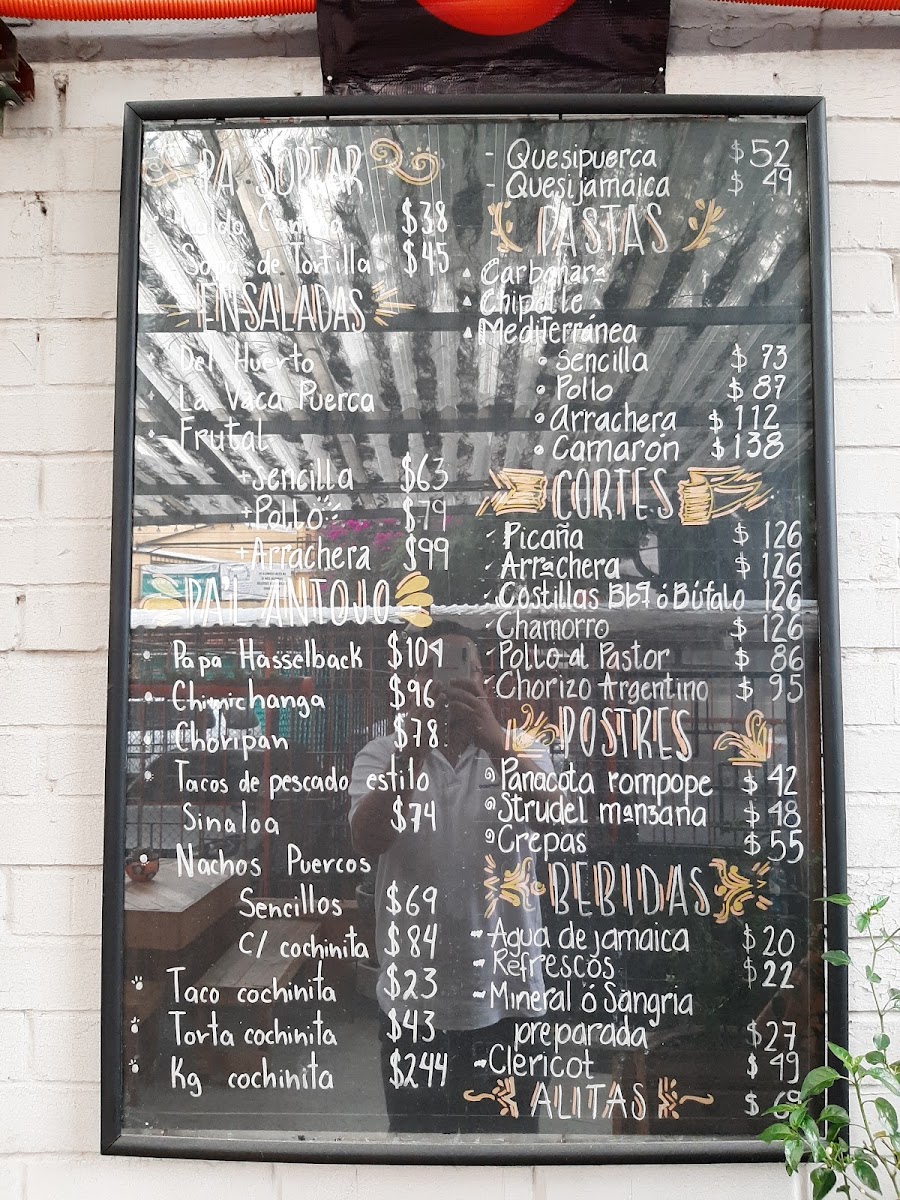 PA' SOPEAR
Caldo Cantina $38
Sopa de Tortilla $45
ENSALADAS
Del Huerto
La Vaca Puerca
Frutal
+ Sencilla $63
+ Pollo $79
+ Arrachera $99
PA'L ANTOJO
Papa Hasselback $104
Chimichanga $96
Choripan $78
Tacos de pescado estilo
Sinaloa $74
Nachos Puercos
Sencillos $69
C/ cochinita $84
Taco cochinita $23
Torta cochinita $43
Kg cochinita $244
- Quesipuerca $52
- Quesijamaica $49
PASTAS
Carbonara
Chipotle
Mediterránea
Sencilla $73
Pollo $87
Arrachera $112
Camarón $138
CORTES
Picaña $126
Arrachera $126
Costillas BbQ ó Búfalo 126
Chamorro $126
Pollo al Pastor $86
Chorizo Argentino $95
POSTRES
Panacota rompope $42
Strudel manzana $48
Crepas $55
BEBIDAS
Agua de jamaica $20
Refrescos $22
Mineral ó Sangria
preparada $27
Clericot $49
ALITAS